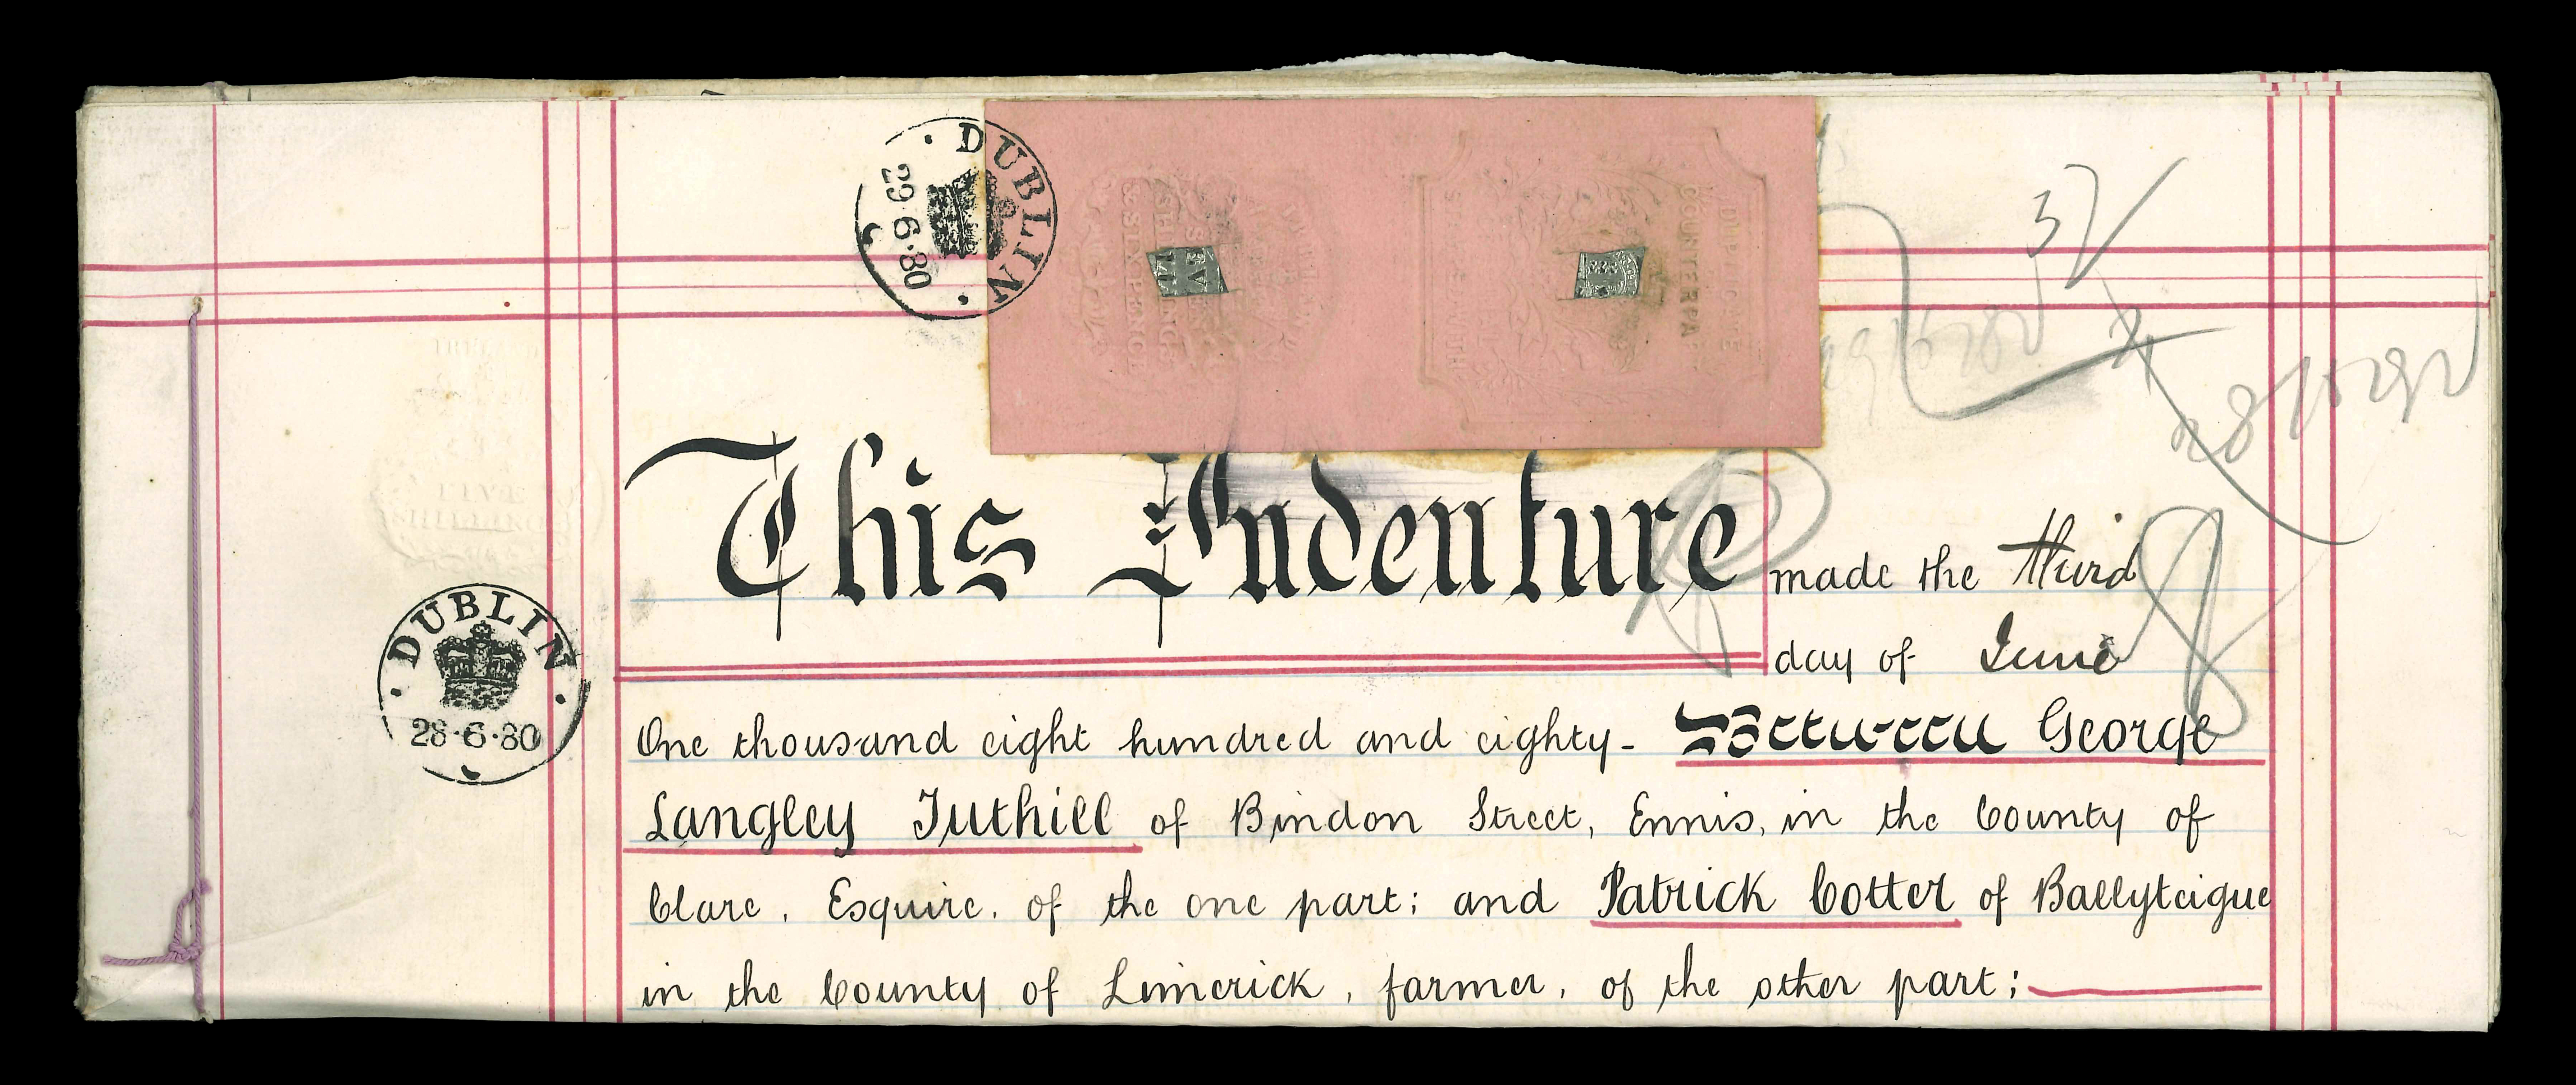 DUBLIN
29·6·80
SEVEN
SHILLINGS
& SIXPENCE
DUPLICATE
COUNTERPA
37
28/6/80
This Indenture made the third
day of June
DUBLIN
28·6·80
One thousand eight hundred and eighty- Between George
Langley Tuthill of Bindon Street, Ennis, in the County of
Clare, Esquire, of the one part; and Patrick Cotter of Ballyteigue
in the County of Limerick, farmer, of the other part;